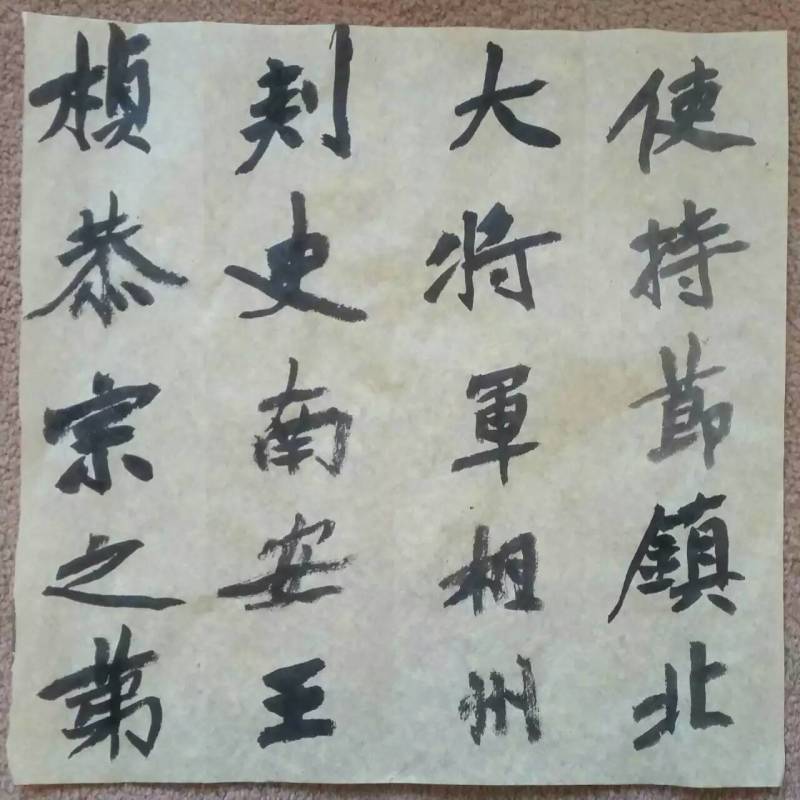 使持節鎮北
大将軍相州
刺史南安王
楨恭宗之第